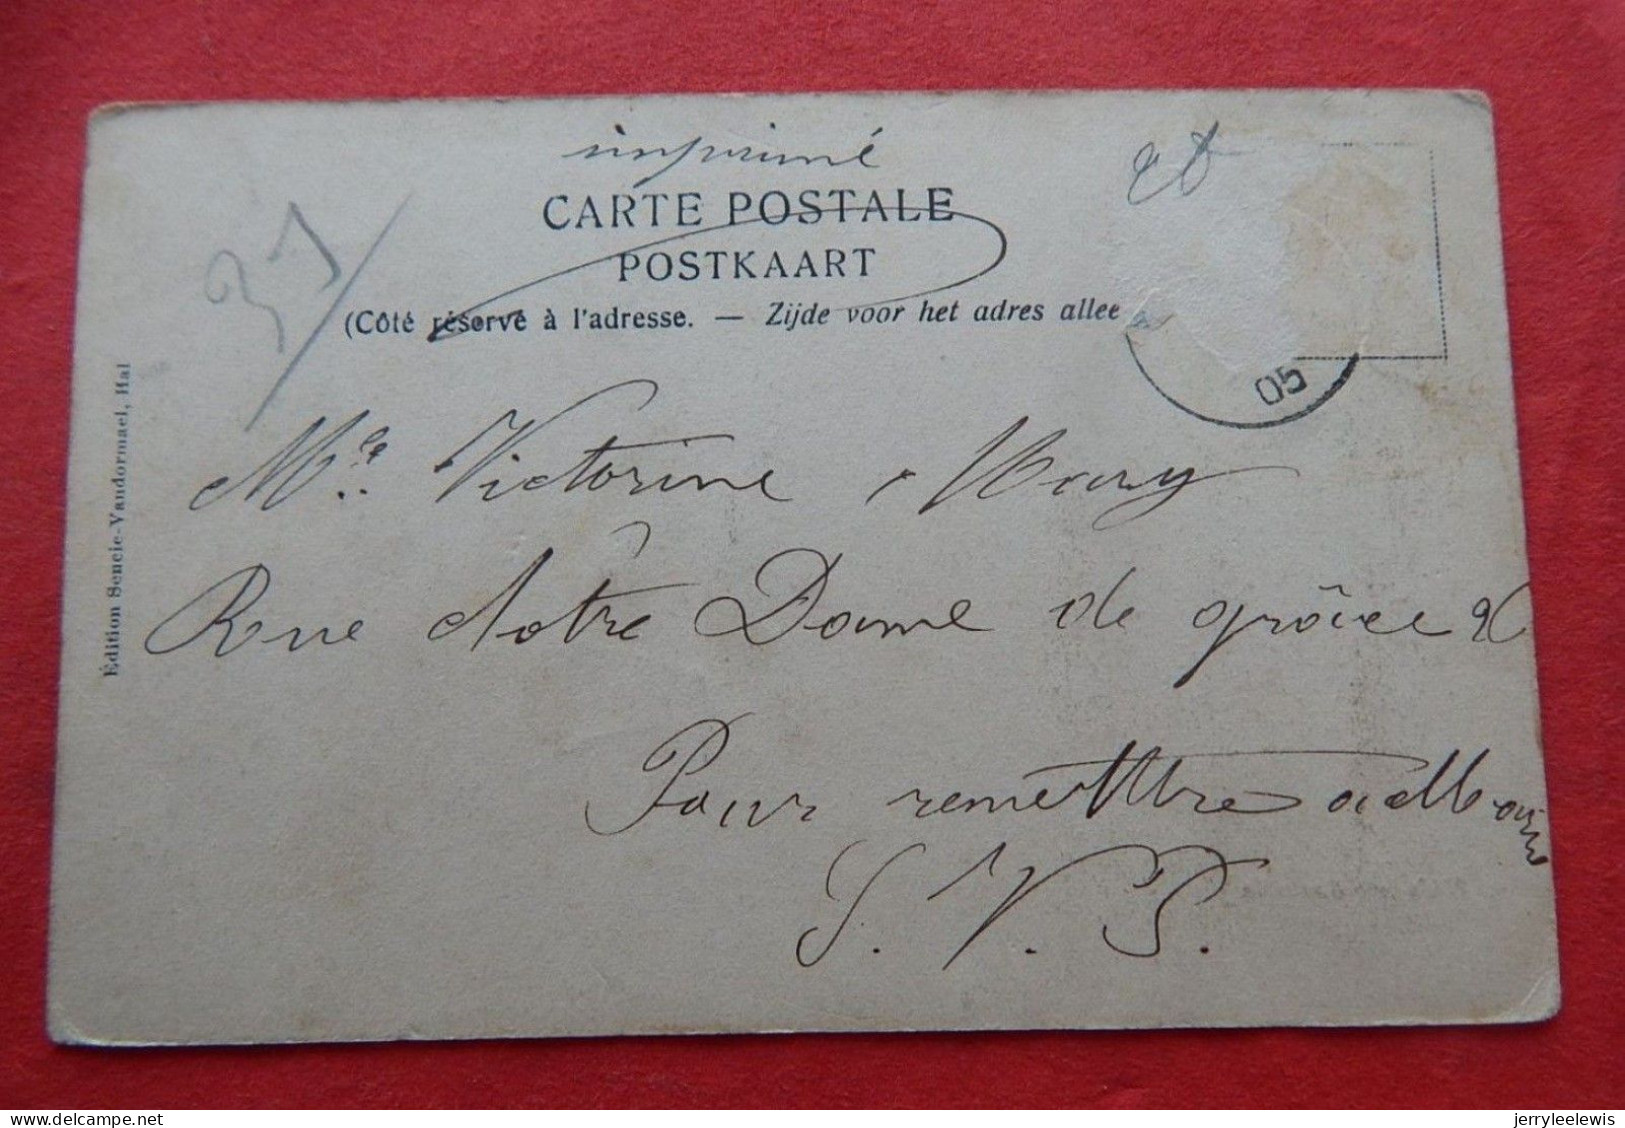 imprimé
CARTE POSTALE
POSTKAART
(Côté réservé à l'adresse. — Zijde voor het adres allee
05
37
Édition Sencie-Vandormael, Hal
Mlle Victorine Mary
Rue Notre Dame de grâce
Pour remettre a
S. V. P.
jerryleelewis